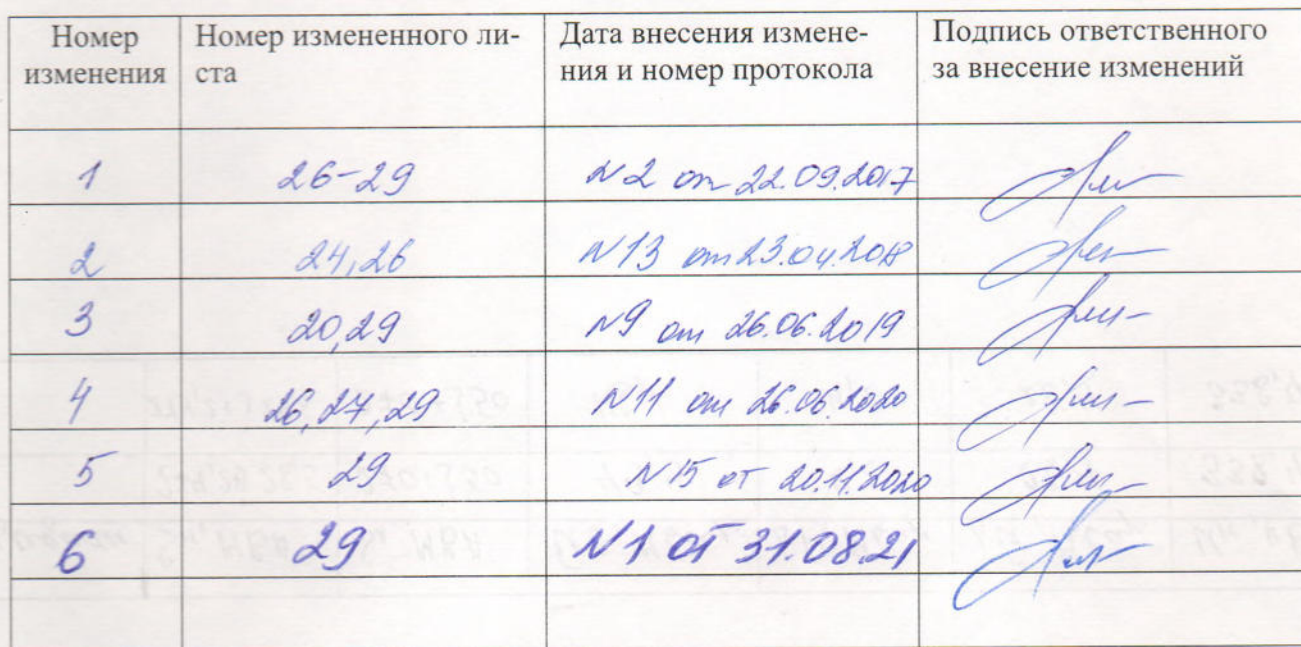 Номер изменения | Номер измененного ли-ста | Дата внесения измене-ния и номер протокола | Подпись ответственного за внесение изменений
1 | 26-29 | N2 от 22.09.2017
2 | 24,26 | N13 от 23.04.2018
3 | 20,29 | N9 от 26.06.2019
4 | 26,27,29 | N11 от 26.06.2020
5 | 29 | N15 от 20.11.2020
6 | 29 | N1 от 31.08.21